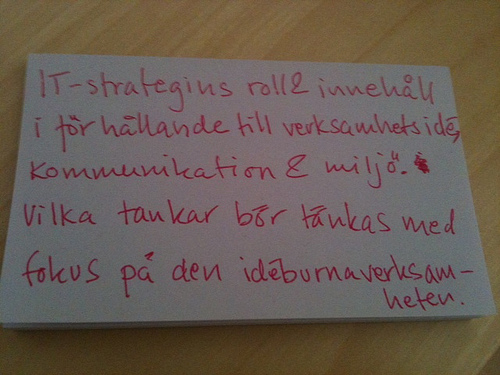 IT-strategins roll & innehåll
i förhållande till verksamhetsidé,
kommunikation & miljö.
Vilka tankar bör tänkas med
fokus på den idéburnaverksam-
heten.